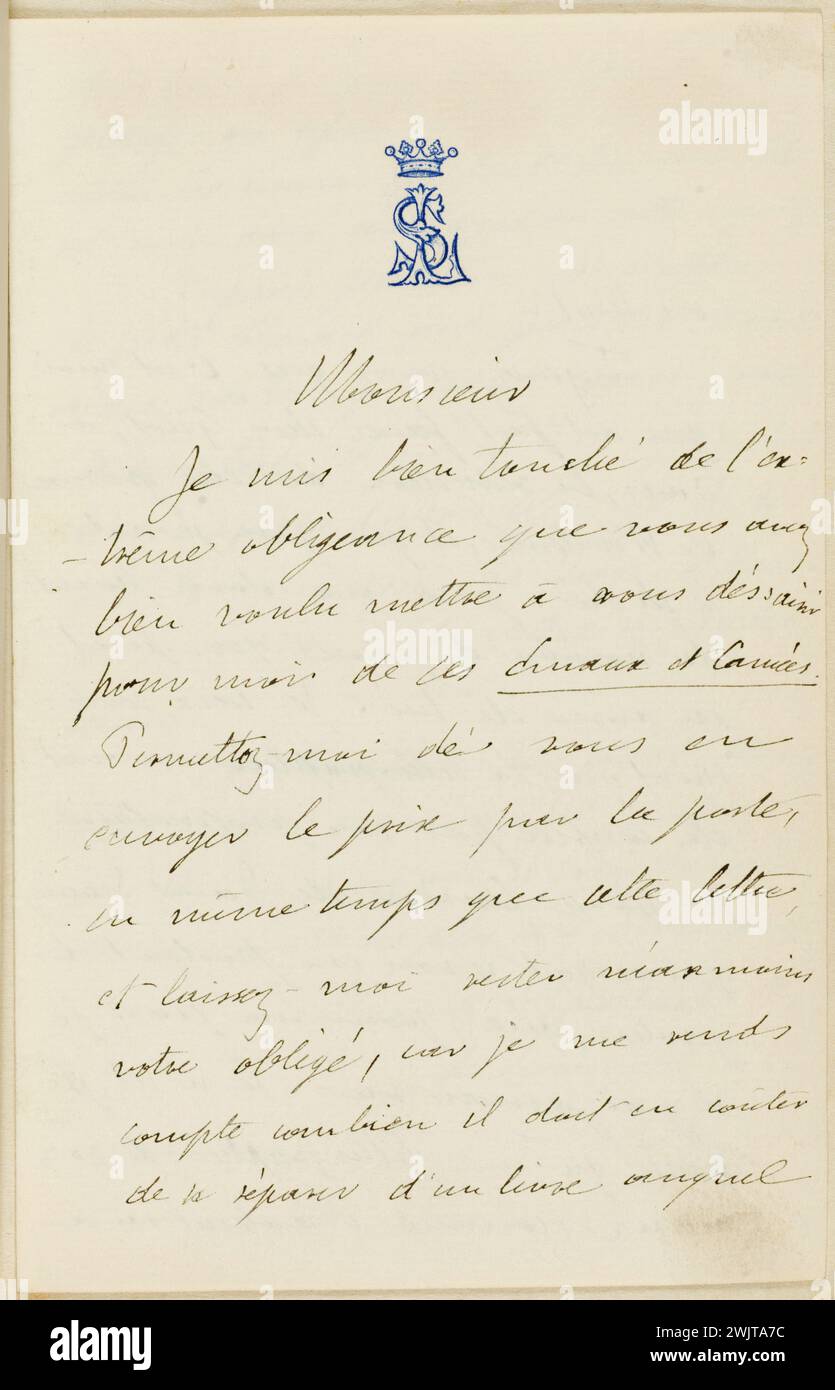 SL
Monsieur
Je suis bien touché de l'ex=
-trême obligeance que vous avez
bien voulu mettre à vous déssaisir
pour moi de ces Emaux et Camées.
Permettez-moi de vous en
envoyer le prix par la poste,
en même temps que cette lettre,
et laissez-moi rester néanmoins
votre obligé, car je me rends
compte combien il doit en coûter
de se séparer d'un livre auquel
alamy
alamy
Image ID: 2WJTA7C
www.alamy.com